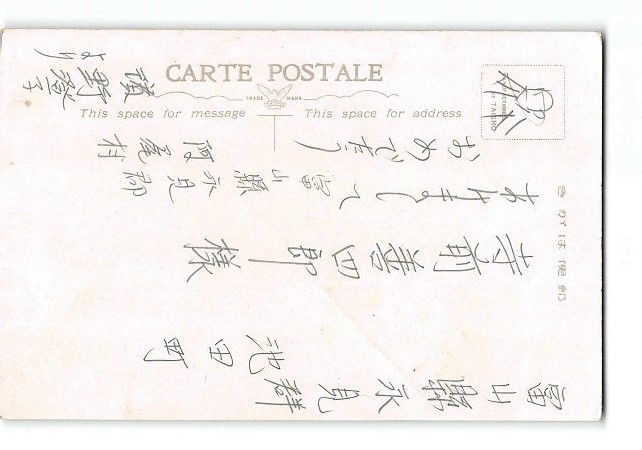 CARTE POSTALE
TRADE MARK
This space for message
This space for address
きかは便郵
富山縣氷見群
池田町
寺前善四郎様
あけまして
おめでたう
富山縣氷見郡
阿尾村
野登子
より